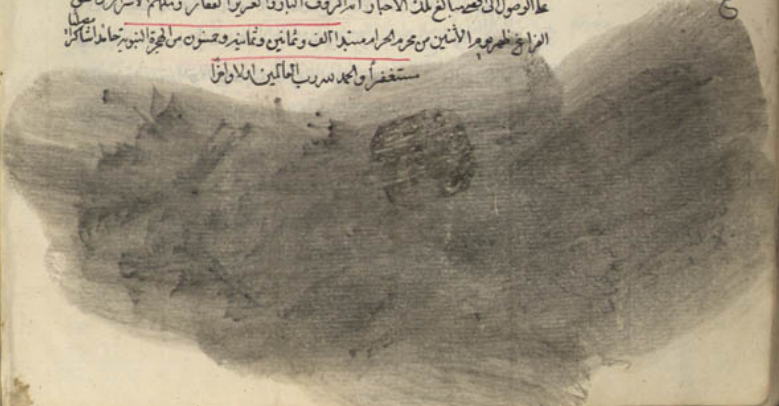 الوصول الى تلك الاخبار انه الرؤف البار والعزيز الغفار
الفراغ ظهر يوم الاثنين من محرم الحرام الف وثمانين وثمانية وخمسون من الهجرة النبوية حامدا شاكرا مصليا
مستغفرا والحمد لله رب العالمين اولا واخرا